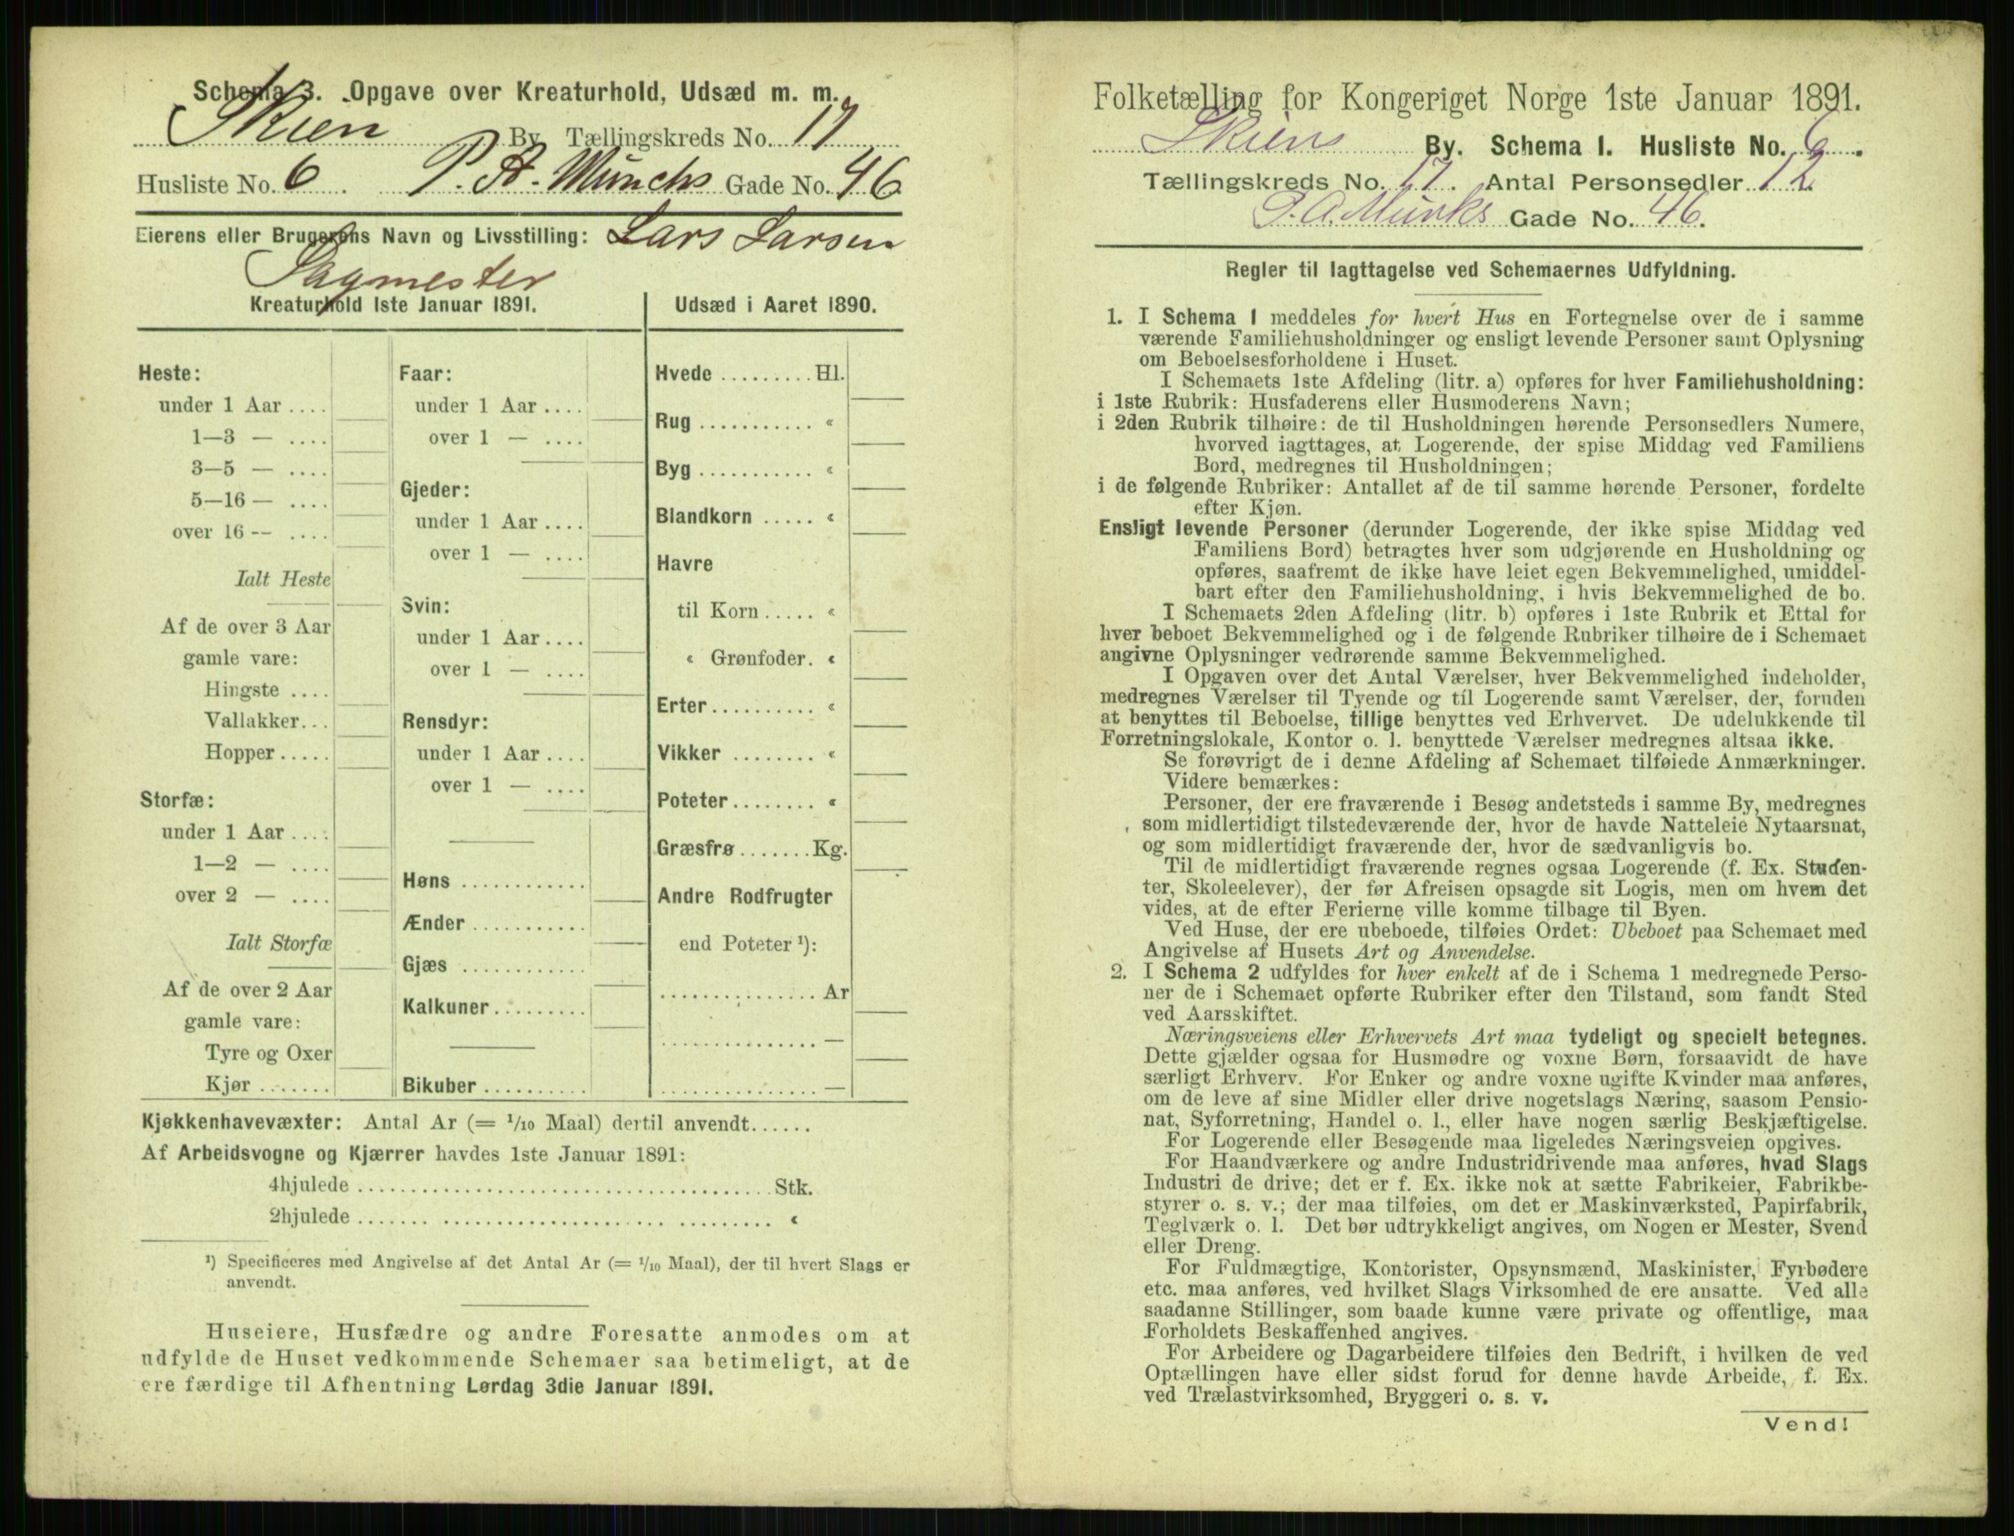 Schema 3. Opgave over Kreaturhold, Udsæd m. m.
Skien By Tællingskreds No. 17
Husliste No. 6 . P. A. Münchs Gade No. 46
Eierens eller Brugerens Navn og Livsstilling: Lars Larsen
Sagmester
Kreaturhold 1ste Januar 1891.
Heste:
under 1 Aar ....
1—3 — ....
3—5 — ....
5—16 — ....
over 16 — ....
Ialt Heste
Af de over 3 Aar
gamle vare:
Hingste ....
Vallakker...
Hopper.....
Storfæ:
under 1 Aar ....
1—2 — ....
over 2 — ....
Ialt Storfæ
Af de over 2 Aar
gamle vare:
Tyre og Oxer
Kjør .......
Faar:
under 1 Aar ....
over 1 — ....
Gjeder:
under 1 Aar ....
over 1 — ....
Svin:
under 1 Aar ....
over 1 — ....
Rensdyr:
under 1 Aar ....
over 1 — ....
Høns ............
Ænder ...........
Gjæs ............
Kalkuner.........
Bikuber ..........
Udsæd i Aaret 1890.
Hvede .........Hl.
Rug ........... «
Byg ........... «
Blandkorn ..... «
Havre
til Korn ..... «
« Grønfoder. «
Erter.......... «
Vikker ........ «
Poteter........ «
Græsfrø .......Kg.
Andre Rodfrugter
end Poteter ¹):
............... Ar
............... —
............... —
Kjøkkenhavevæxter: Antal Ar (= 1/10 Maal) dertil anvendt......
Af Arbeidsvogne og Kjærrer havdes 1ste Januar 1891:
4hjulede ....................................... Stk.
2hjulede ....................................... «
¹) Specificeres med Angivelse af det Antal Ar (= 1/10 Maal), der til hvert Slags er
anvendt.
Huseiere, Husfædre og andre Foresatte anmodes om at
udfylde de Huset vedkommende Schemaer saa betimeligt, at de
ere færdige til Afhentning Lørdag 3die Januar 1891.
Folketælling for Kongeriget Norge 1ste Januar 1891.
Skiens By. Schema 1. Husliste No. 6 .
Tællingskreds No. 17. Antal Personsedler 12
P. A. Munks Gade No. 46.
Regler til Iagttagelse ved Schemaernes Udfyldning.
1. I Schema 1 meddeles for hvert Hus en Fortegnelse over de i samme
værende Familiehusholdninger og ensligt levende Personer samt Oplysning
om Beboelsesforholdene i Huset.
I Schemaets 1ste Afdeling (litr. a) opføres for hver Familiehusholdning:
i 1ste Rubrik: Husfaderens eller Husmoderens Navn;
i 2den Rubrik tilhøire: de til Husholdningen hørende Personsedlers Numere,
hvorved iagttages, at Logerende, der spise Middag ved Familiens
Bord, medregnes til Husholdningen;
i de følgende Rubriker: Antallet af de til samme hørende Personer, fordelte
efter Kjøn.
Ensligt levende Personer (derunder Logerende, der ikke spise Middag ved
Familiens Bord) betragtes hver som udgjørende en Husholdning og
opføres, saafremt de ikke have leiet egen Bekvemmelighed, umiddel-
bart efter den Familiehusholdning, i hvis Bekvemmelighed de bo.
I Schemaets 2den Afdeling (litr. b) opføres i 1ste Rubrik et Ettal for
hver beboet Bekvemmelighed og i de følgende Rubriker tilhøire de i Schemaet
angivne Oplysninger vedrørende samme Bekvemmelighed.
I Opgaven over det Antal Værelser, hver Bekvemmelighed indeholder,
medregnes Værelser til Tyende og til Logerende samt Værelser, der, foruden
at benyttes til Beboelse, tillige benyttes ved Erhvervet. De udelukkende til
Forretningslokale, Kontor o. l. benyttede Værelser medregnes altsaa ikke.
Se forøvrigt de i denne Afdeling af Schemaet tilføiede Anmærkninger.
Videre bemærkes:
Personer, der ere fraværende i Besøg andetsteds i samme By, medregnes
som midlertidigt tilstedeværende der, hvor de havde Natteleie Nytaarsnat,
og som midlertidigt fraværende der, hvor de sædvanligvis bo.
Til de midlertidigt fraværende regnes ogsaa Logerende (f. Ex. Studen-
ter, Skoleelever), der før Afreisen opsagde sit Logis, men om hvem det
vides, at de efter Ferierne ville komme tilbage til Byen.
Ved Huse, der ere ubeboede, tilføies Ordet: Ubeboet paa Schemaet med
Angivelse af Husets Art og Anvendelse.
2. I Schema 2 udfyldes for hver enkelt af de i Schema 1 medregnede Perso-
ner de i Schemaet opførte Rubriker efter den Tilstand, som fandt Sted
ved Aarsskiftet.
Næringsveiens eller Erhvervets Art maa tydeligt og specielt betegnes.
Dette gjælder ogsaa for Husmødre og voxne Børn, forsaavidt de have
særligt Erhverv. For Enker og andre voxne ugifte Kvinder maa anføres,
om de leve af sine Midler eller drive nogetslags Næring, saasom Pensio-
nat, Syforretning, Handel o. l., eller have nogen særlig Beskjæftigelse.
For Logerende eller Besøgende maa ligeledes Næringsveien opgives.
For Haandværkere og andre Industridrivende maa anføres, hvad Slags
Industri de drive; det er f. Ex. ikke nok at sætte Fabrikeier, Fabrikbe-
styrer o. s. v.; der maa tilføies, om det er Maskinværksted, Papirfabrik,
Teglværk o. l. Det bør udtrykkeligt angives, om Nogen er Mester, Svend
eller Dreng.
For Fuldmægtige, Kontorister, Opsynsmænd, Maskinister, Fyrbødere
etc. maa anføres, ved hvilket Slags Virksomhed de ere ansatte. Ved alle
saadanne Stillinger, som baade kunne være private og offentlige, maa
Forholdets Beskaffenhed angives.
For Arbeidere og Dagarbeidere tilføies den Bedrift, i hvilken de ved
Optællingen have eller sidst forud for denne havde Arbeide, f. Ex.
ved Trælastvirksomhed, Bryggeri o. s. v.
Vend!